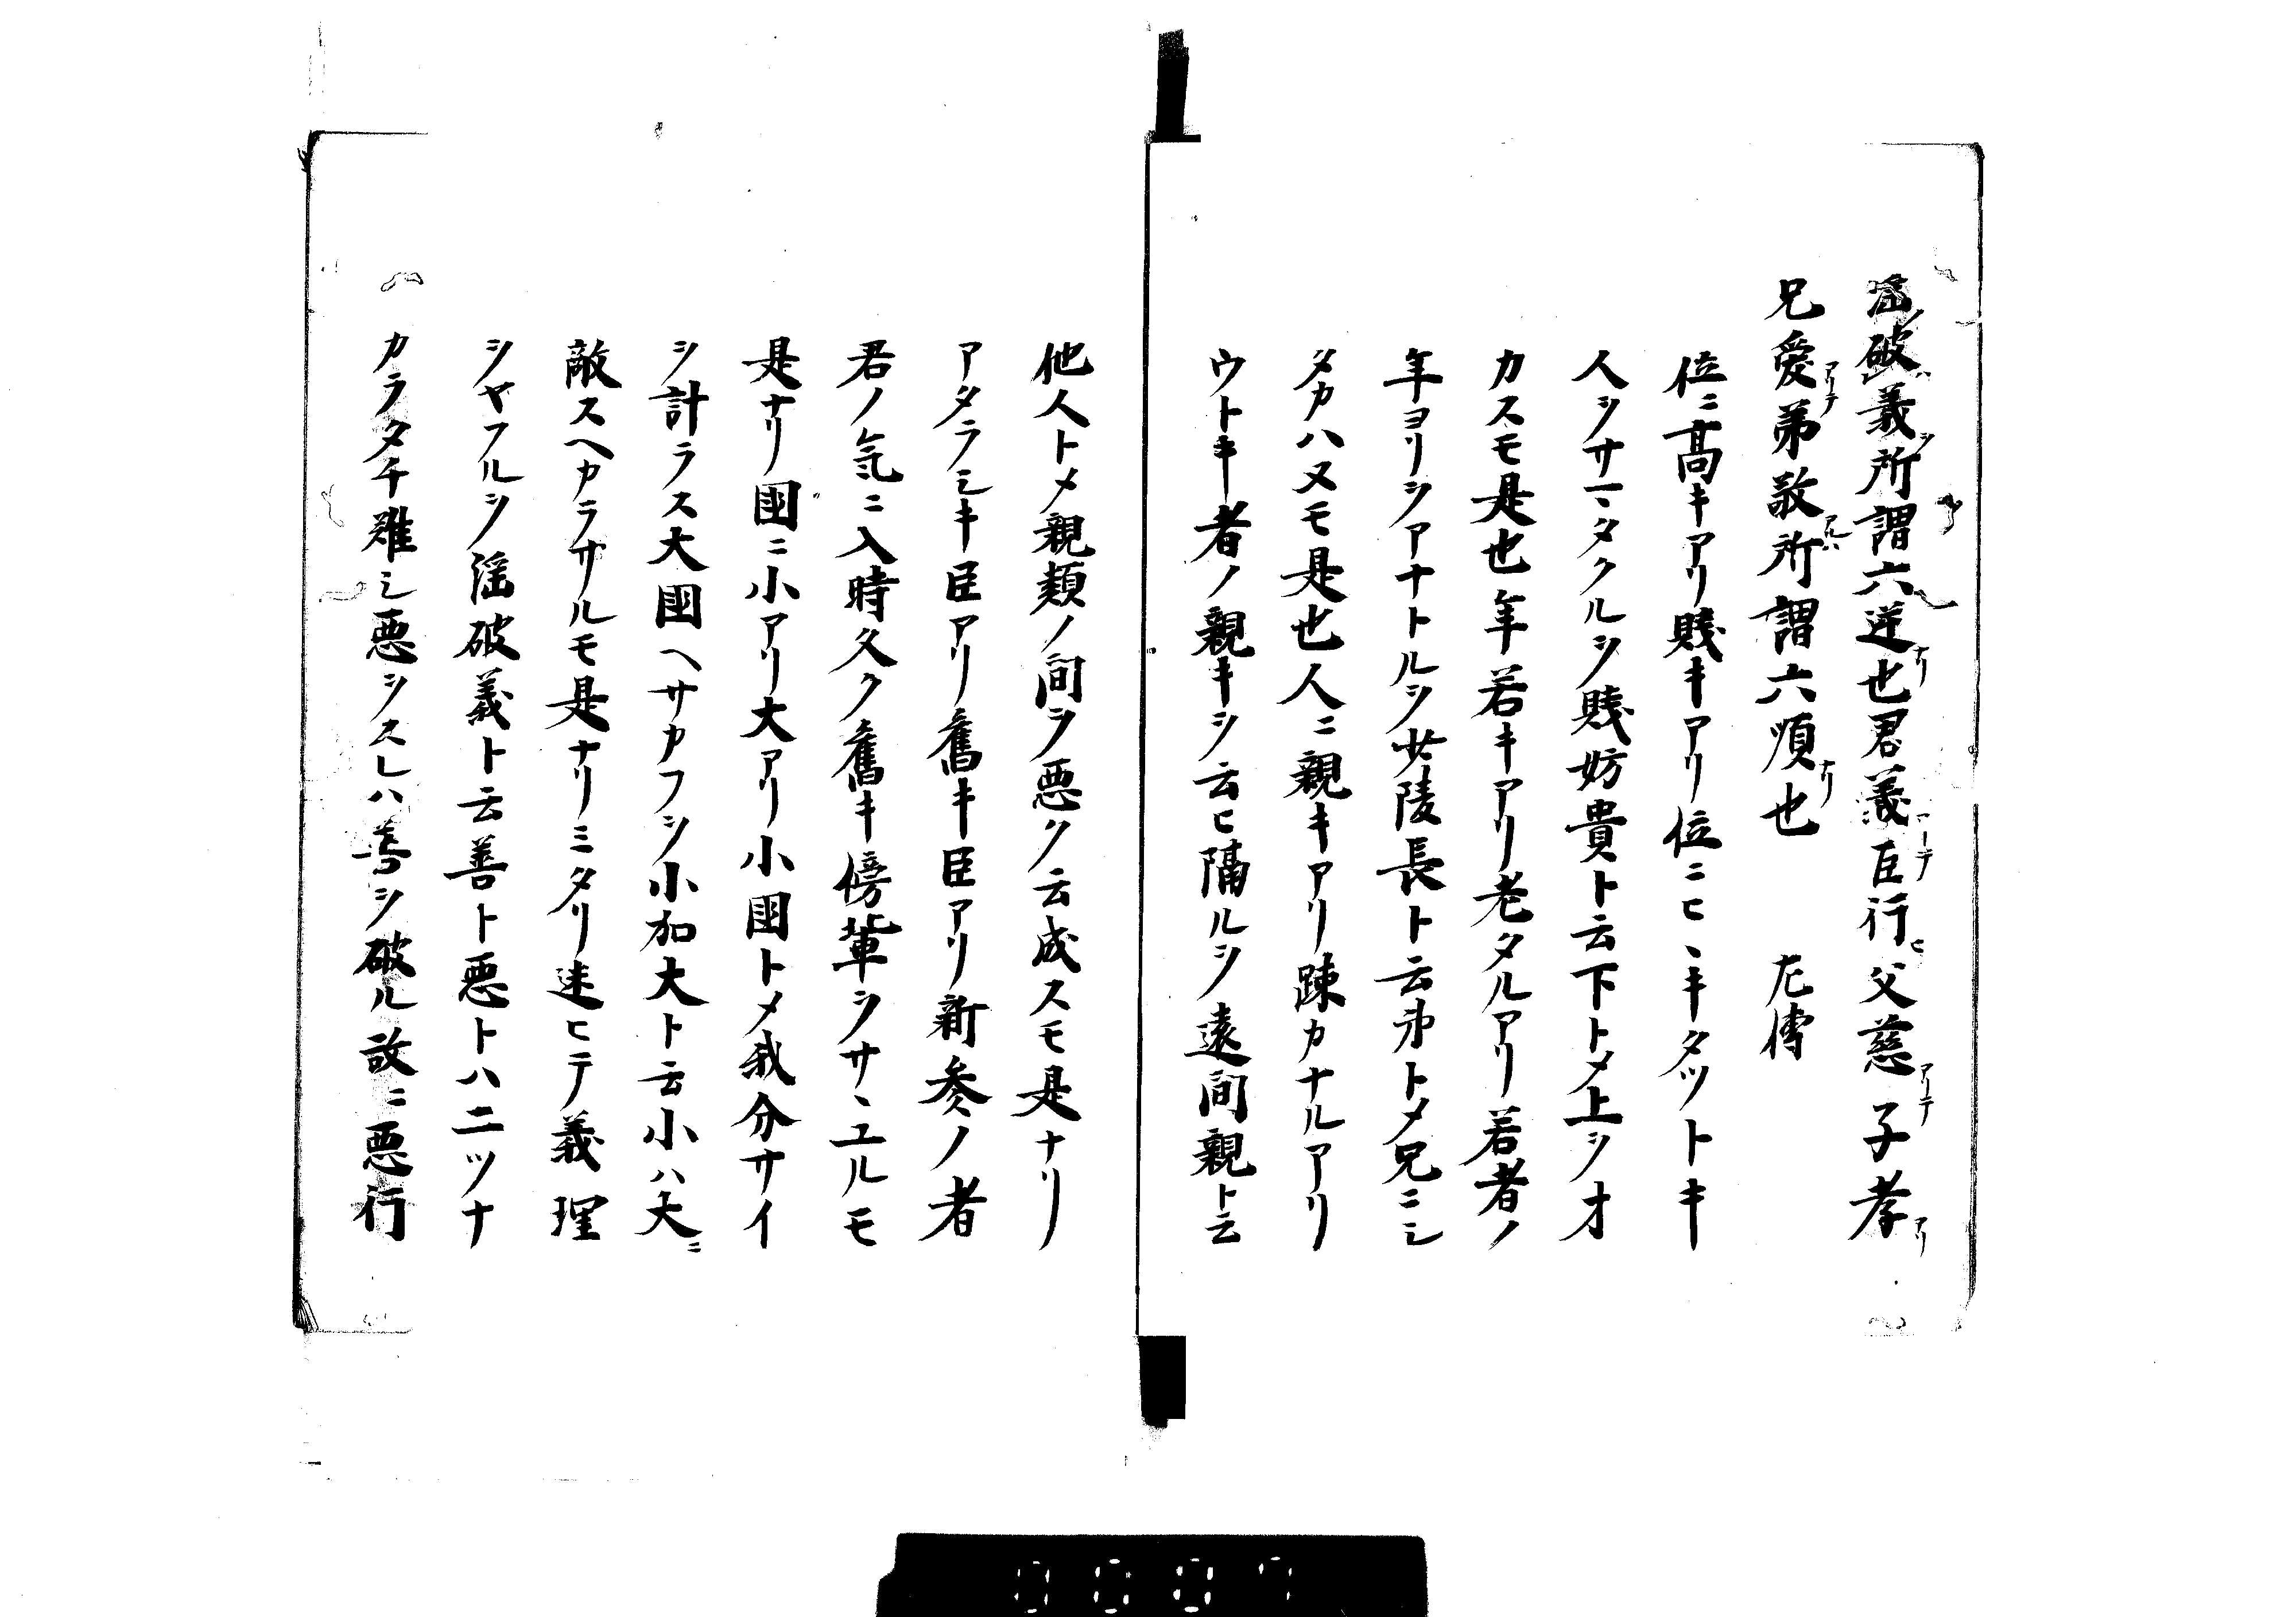 淫破義所謂六逆也君義臣行父慈子孝
兄愛弟敬所謂六順也　　左傳
位ニ高キアリ賤キアリ位ニヒヽキタツトキ
人ヲサマタクルヲ賤妨貴ト云下トメ上ヲオ
カスモ是也年若キアリ老タルアリ若者ノ
年ヨリヲアナトルヲ少陵長ト云弟トメ兄ニシ
タカハヌモ是也人ニ親キアリ踈カナルアリ
ウトキ者ノ親キヲ云ヒ隔ルヲ遠間親ト云
他人トメ親類ノ間ヲ悪ク云成スモ是ナリ
アタラシキ臣アリ舊キ臣アリ新参ノ者
君ノ氣ニ入時久ク舊キ傍輩ヲサヽユルモ
是ナリ國ニ小アリ大アリ小國トメ我分サイ
ヲ計ラス大國ヘサカフヲ小加大ト云小ハ大ニ
敵スヘカラサルモ是ナリミタリ迷ヒテ義理
ヲヤフルヲ淫破義ト云善ト悪トハ二ツナ
カラタチ難シ悪ヲスレハ善ヲ破ル故ニ悪行